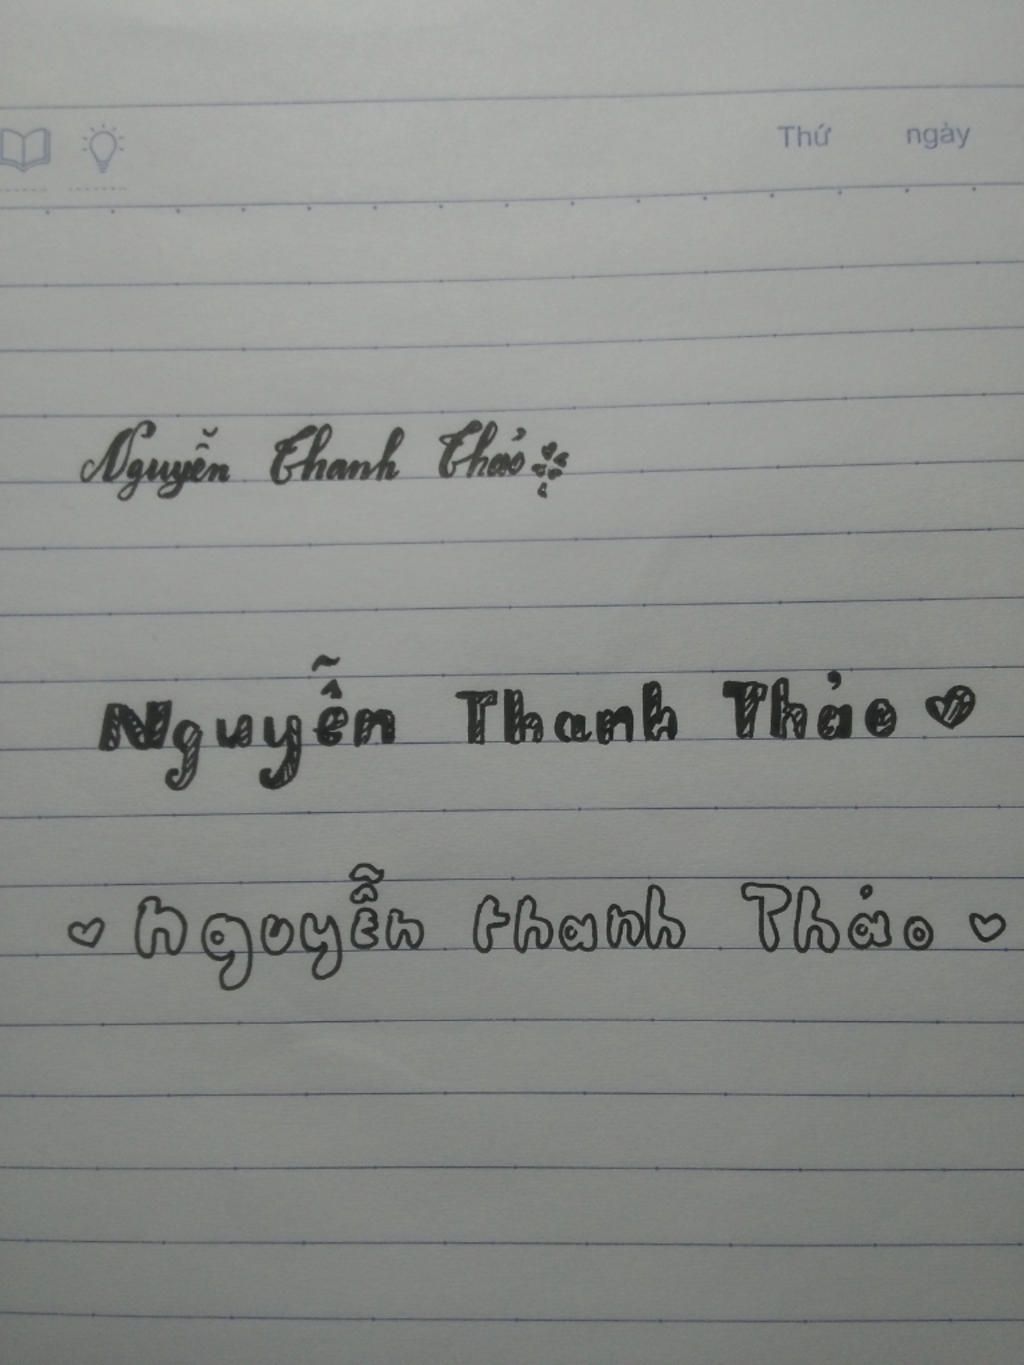 Thứ ngày
Nguyễn Thanh Thảo
Nguyễn Thanh Thảo
Nguyễn thanh Thảo